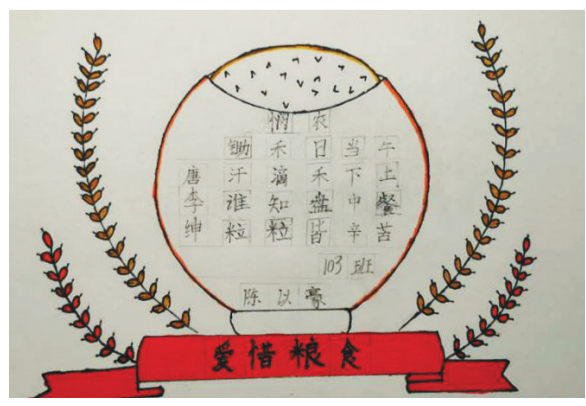 悯农
锄禾日当午
汗滴禾下土
谁知盘中餐
粒粒皆辛苦
唐李绅
103班
陈以豪
爱惜粮食